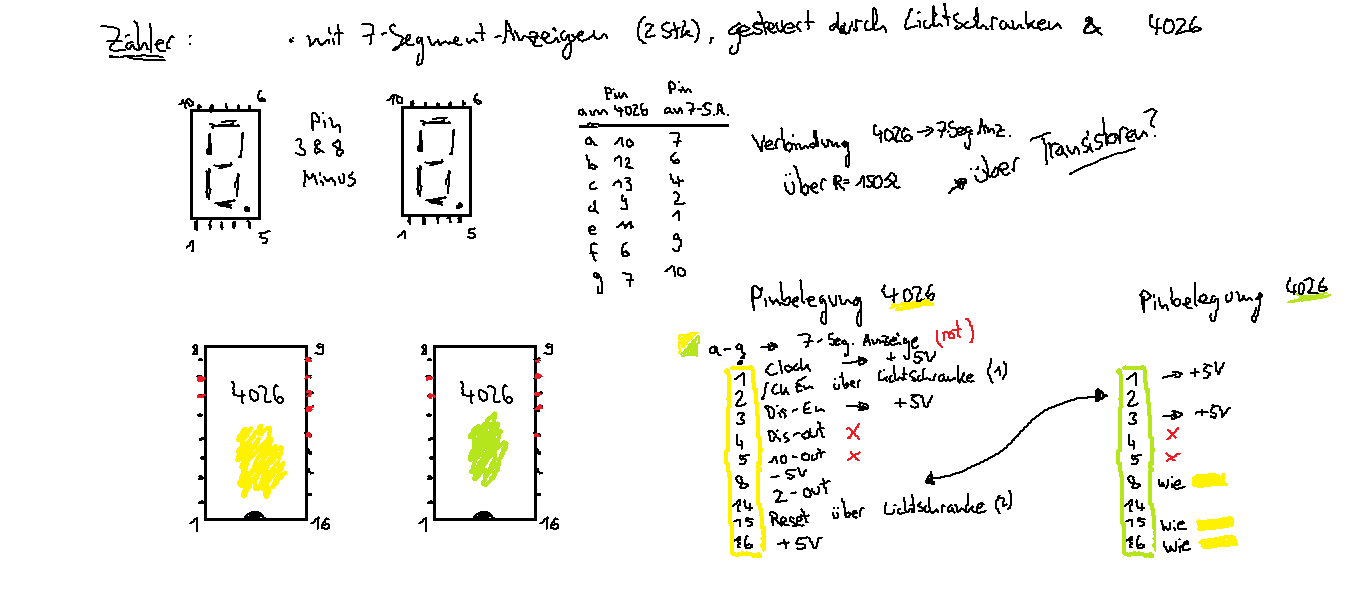 Zähler : • mit 7-Segment-Anzeigen (2 Stk), gesteuert durch Lichtschranken & 4026
10 6
Pin
3 & 8
Minus
1 5
10 6
1 5
Pin Pin
am 4026 an 7-S.A.
a 10 7
b 12 6
c 13 4
d 9 2
e 11 1
f 6 9
g 7 10
Verbindung 4026 → 7Seg Anz.
über R=150Ω → über Transistoren?
8 9
4026
1 16
8 9
4026
1 16
Pinbelegung 4026
a-g → 7-Seg. Anzeige (rot)
1 Clock → +5V
2 /Ch En über Lichtschranke (1)
3 Dis-En → +5V
4 Dis-out x
5 10-out x
8 -5V
14 2-out
15 Reset über Lichtschranke (2)
16 +5V
Pinbelegung 4026
1 → +5V
2
3 → +5V
4 x
5 x
8 wie
14
15 wie
16 wie